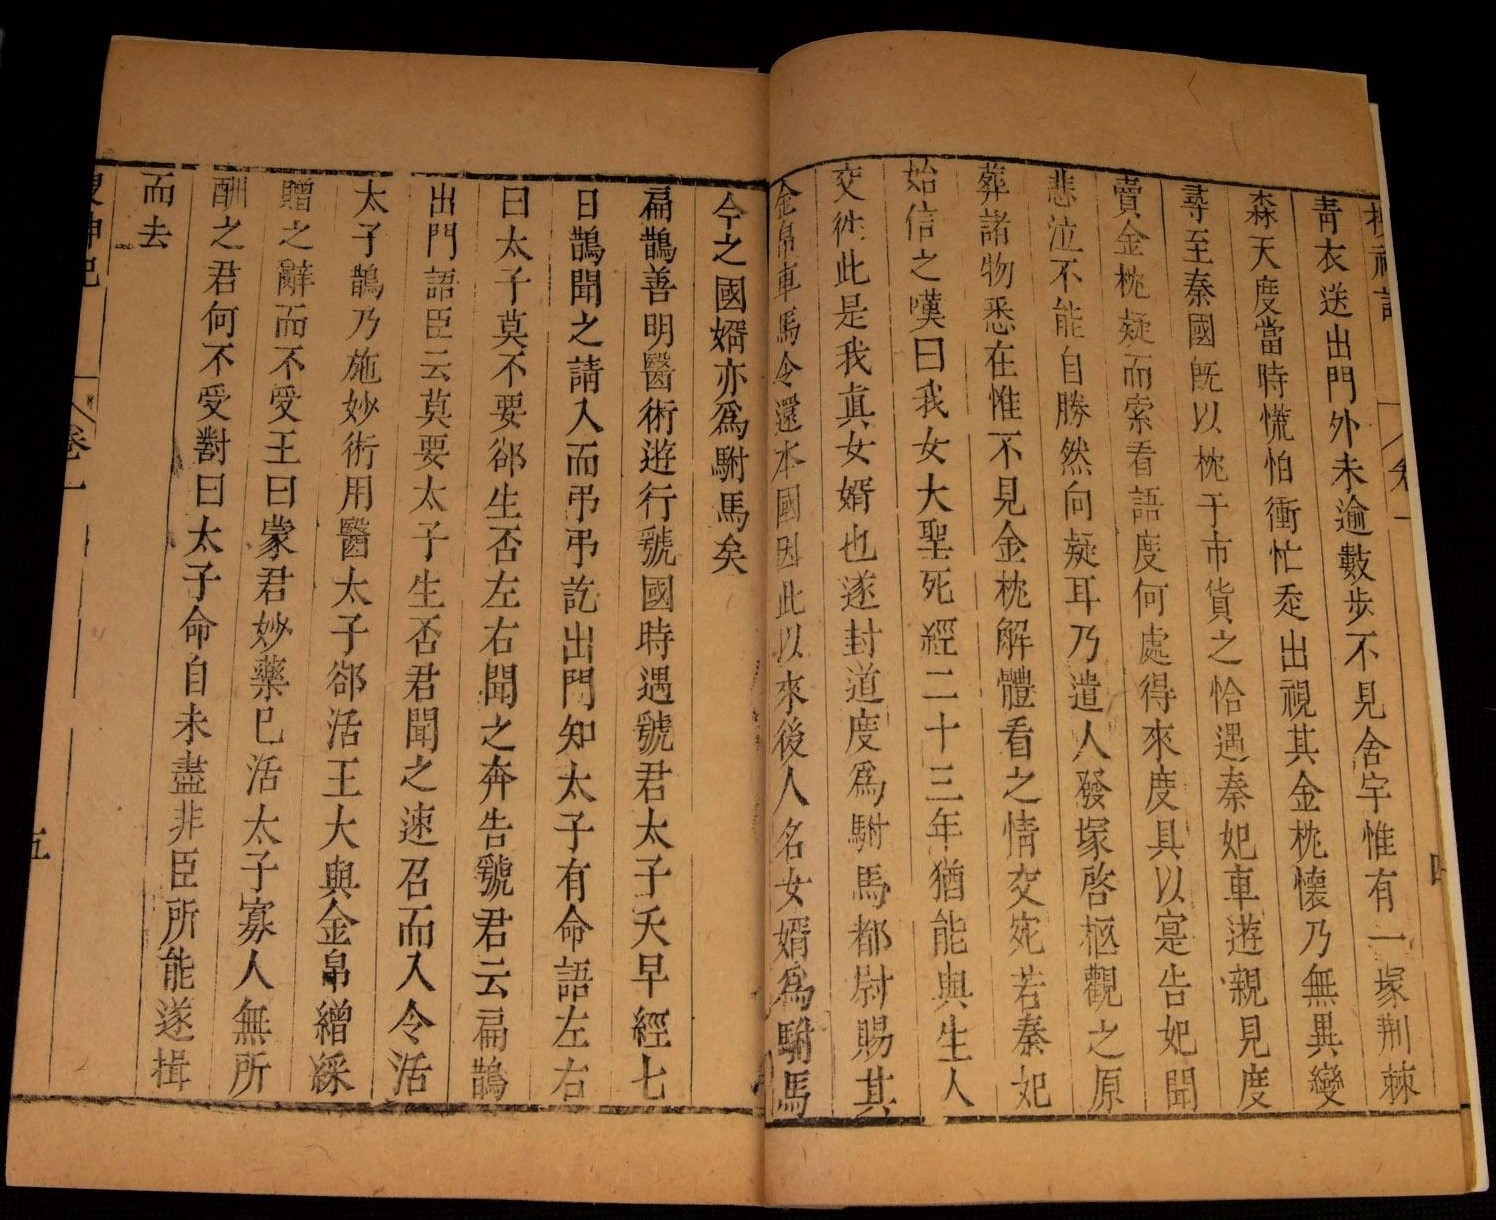 搜神記 卷一 四
青衣送出門外未逾數步不見舍宇惟有一塚荆棘
森天度當時慌怕衝忙走出視其金枕懷乃無異變
尋至秦國旣以枕于市貨之恰遇秦妃車遊親見度
賣金枕疑而索看語度何處得來度具以寔告妃聞
悲泣不能自勝然向疑耳乃遣人發塚啓柩觀之原
葬諸物悉在惟不見金枕解體看之情交宛若秦妃
始信之嘆曰我女大聖死經二十三年猶能與生人
交徃此是我眞女婿也遂封道度爲駙馬都尉賜其
金帛車馬令還本國因此以來後人名女婿爲駙馬
今之國婿亦爲駙馬矣
扁鵲善明醫術遊行虢國時遇虢君太子夭早經七
日鵲聞之請入而弔弔訖出門知太子有命語左右
曰太子莫不要郤生否左右聞之奔告虢君云扁鵲
出門語臣云莫要太子生否君聞之速召而入令活
太子鵲乃施妙術用醫太子郤活王大與金帛繒綵
贈之辭而不受王曰蒙君妙藥已活太子寡人無所
酬之君何不受對曰太子命自未盡非臣所能遂揖
而去
搜神記 卷一 五